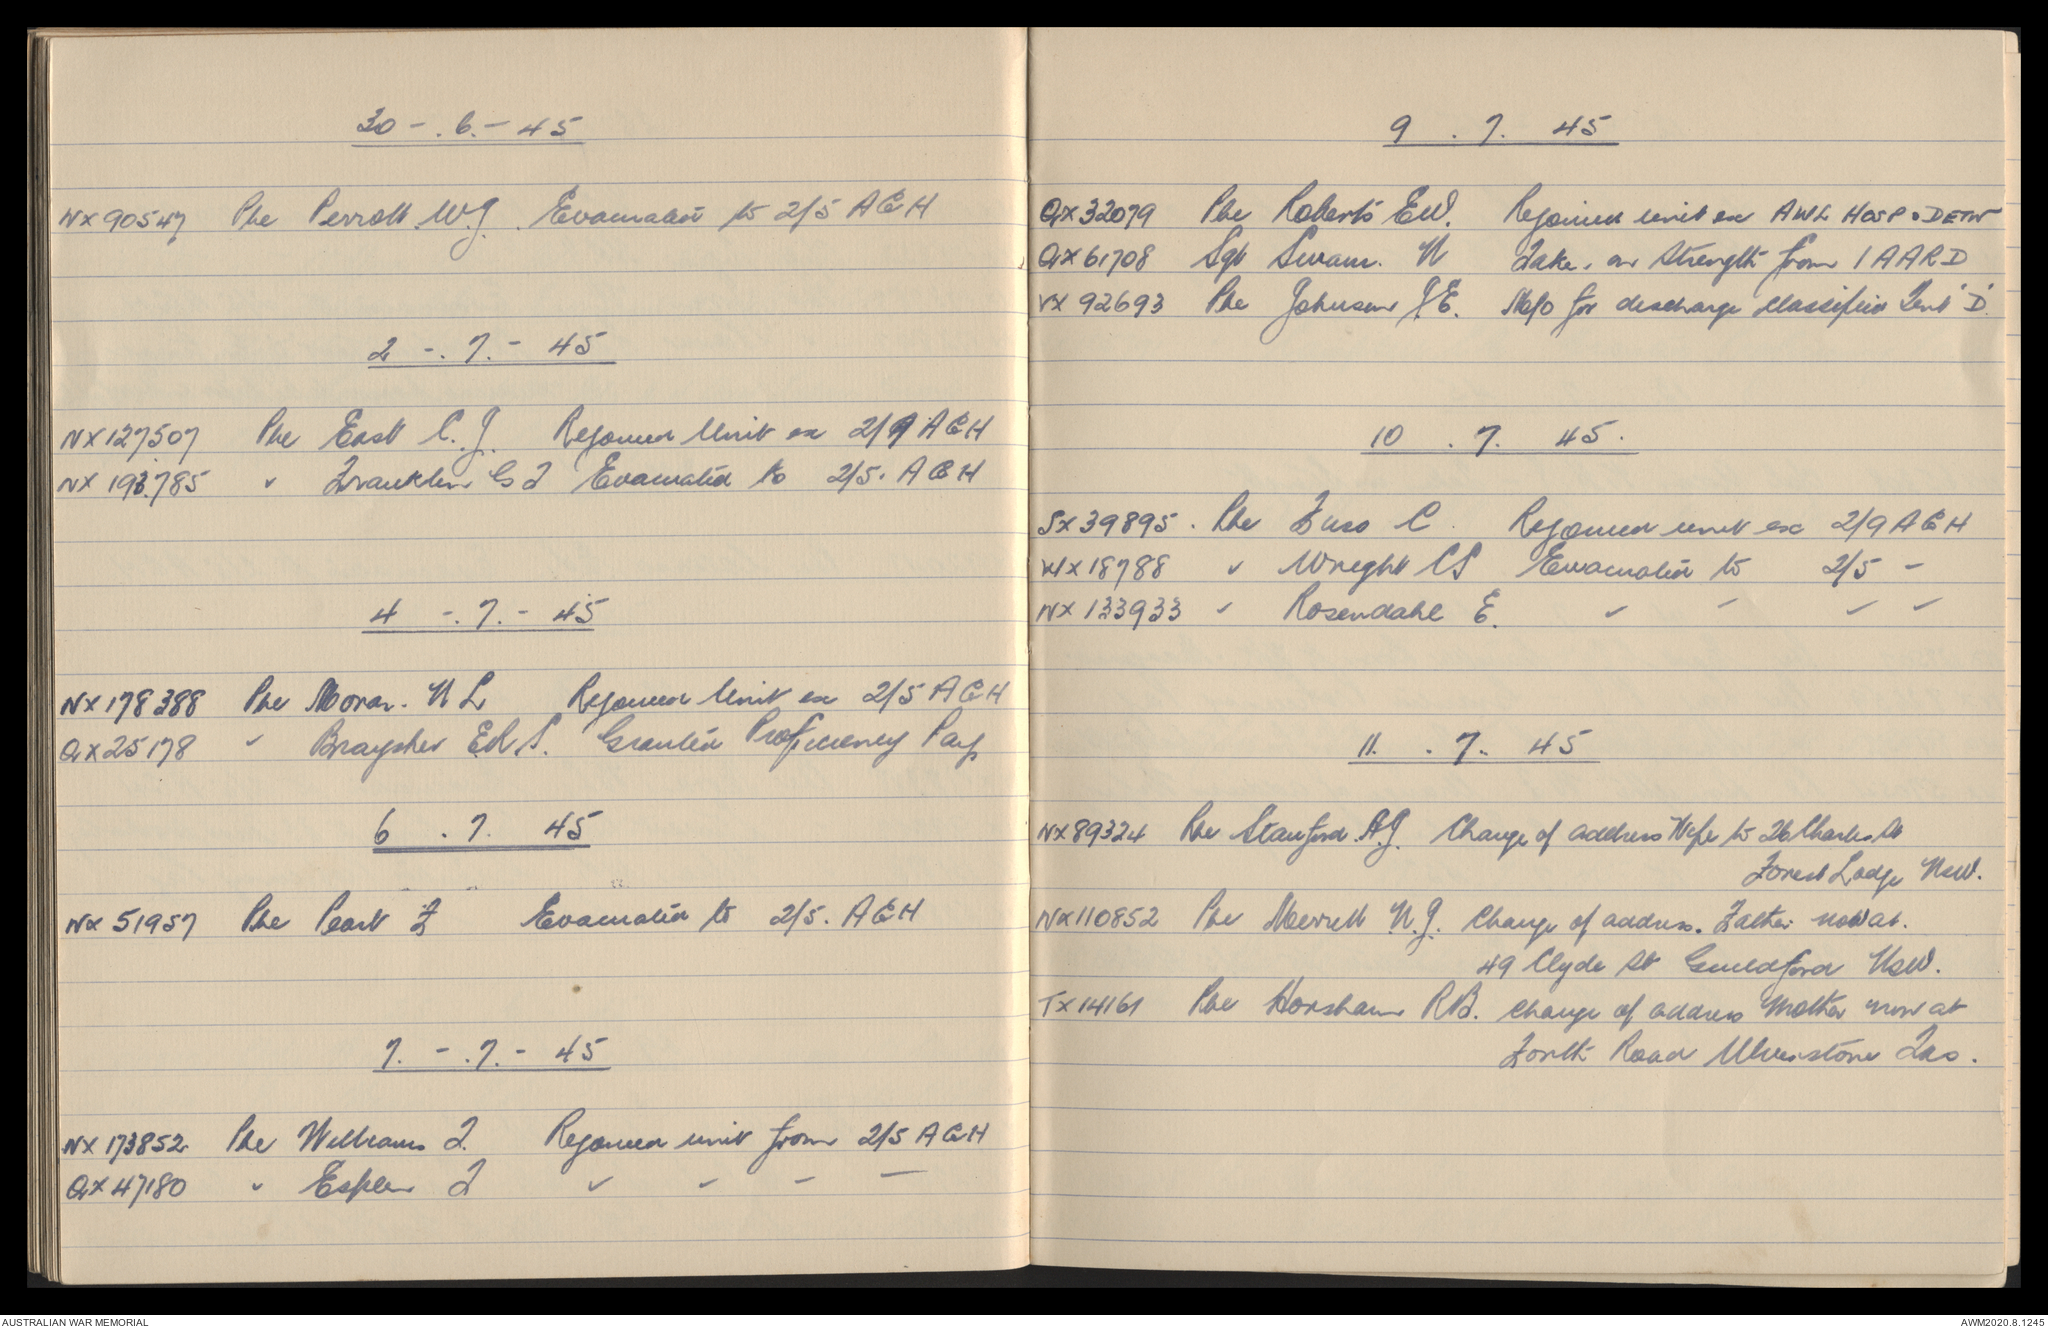 30 - . 6. - 45
NX90547 Pte Perrott W.J. Evacuated to 2/5 AGH
2 - . 7. - 45
NX127507 Pte East C. J. Rejoined Unit ex 2/9 AGH
NX193785 " Franklin G F Evacuated to 2/5. AGH
4 - . 7. - 45
NX178388 Pte Moran. N L Rejoined Unit ex 2/5 AGH
QX25178 " Braysher E.R S. Granted Proficiency Pay
6 . 7. 45
NX51957 Pte Peart F Evacuated to 2/5. AGH
7. - . 7. - 45
NX173852 Pte Williams J. Rejoined unit from 2/5 AGH
QX47180 " Esplen J " " " "
9 . 7. 45
QX32079 Pte Roberts EW. Rejoined unit ex AWL HOSP. DETN
QX61708 Sgt Swann. N Take. on Strength from 1 AARD
VX92693 Pte Johnson J E. M/O for discharge classified Tent 'D'.
10 . 7. 45.
SX39895. Pte Fuss C. Rejoined unit ex 2/9 AGH
WX18788 " Wright CS Evacuated to 2/5 -
NX133933 " Rosendahl E. " " " "
11. . 7.. 45
NX89324 Pte Stanford. A.J. Change of address Wife to 26 Charles St
Forest Lodge NSW.
NX110852 Pte Merrett N.J. Change of address. Father now at.
49 Clyde St Guildford NSW.
TX14161 Pte Horsham R B. change of address Mother now at
Forth Road Ulverstone Tas.